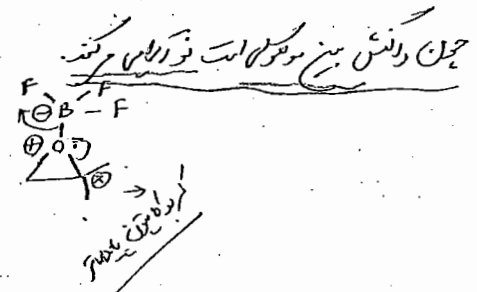 چون واکنش بین مولکولی است نوآرایی می‌کند.
F F
⊖ B – F
⊕ O :
⊕
→ کربوکاتیون پایدارتر